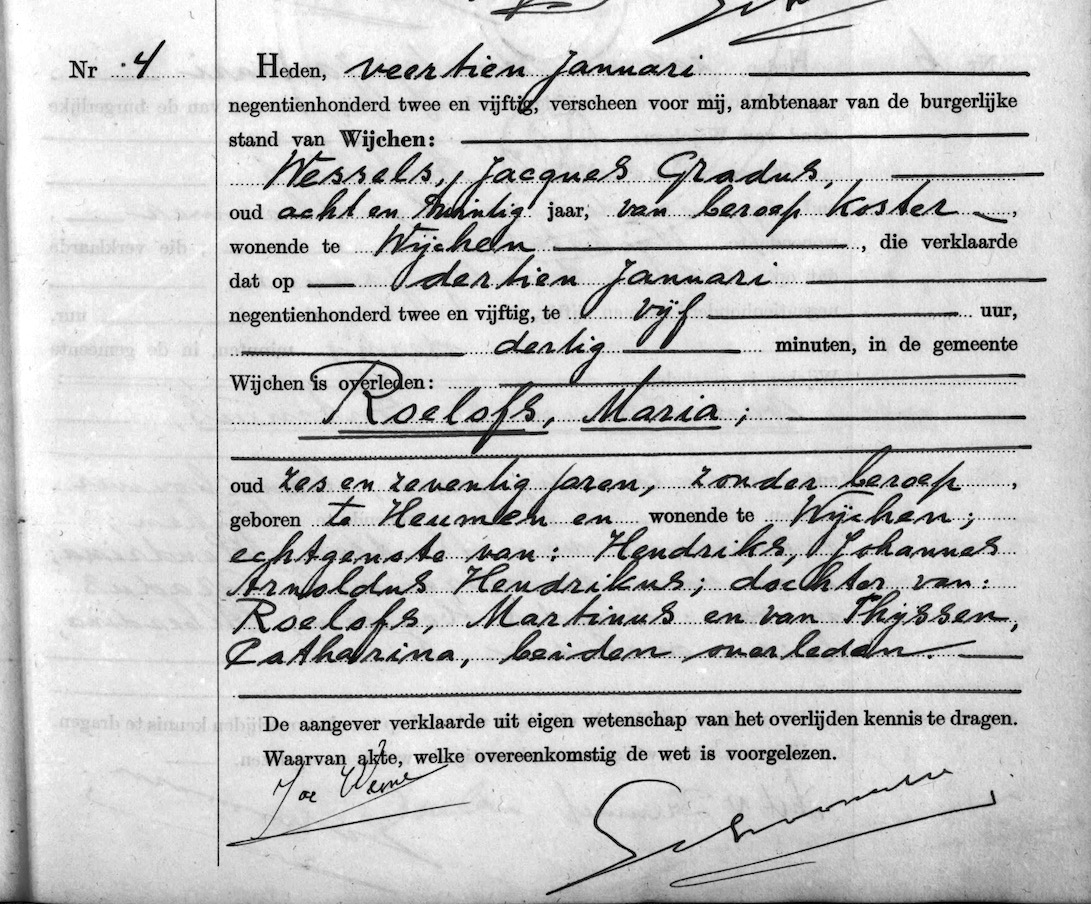 Nr 4 Heden, veertien Januari
negentienhonderd twee en vijftig, verscheen voor mij, ambtenaar van de burgerlijke
stand van Wijchen:
Wessels, Jacques Gradus,
oud acht en twintig jaar, van beroep koster,
wonende te Wijchen, die verklaarde
dat op dertien Januari
negentienhonderd twee en vijftig, te vijf uur,
dertig minuten, in de gemeente
Wijchen is overleden:
Roelofs, Maria;
oud zes en zeventig jaren, zonder beroep,
geboren te Heumen en wonende te Wijchen;
echtgenote van: Hendriks, Johannes
Arnoldus Hendrikus; dochter van:
Roelofs, Martinus en van Thijssen,
Catharina, beiden overleden.
De aangever verklaarde uit eigen wetenschap van het overlijden kennis te dragen.
Waarvan akte, welke overeenkomstig de wet is voorgelezen.